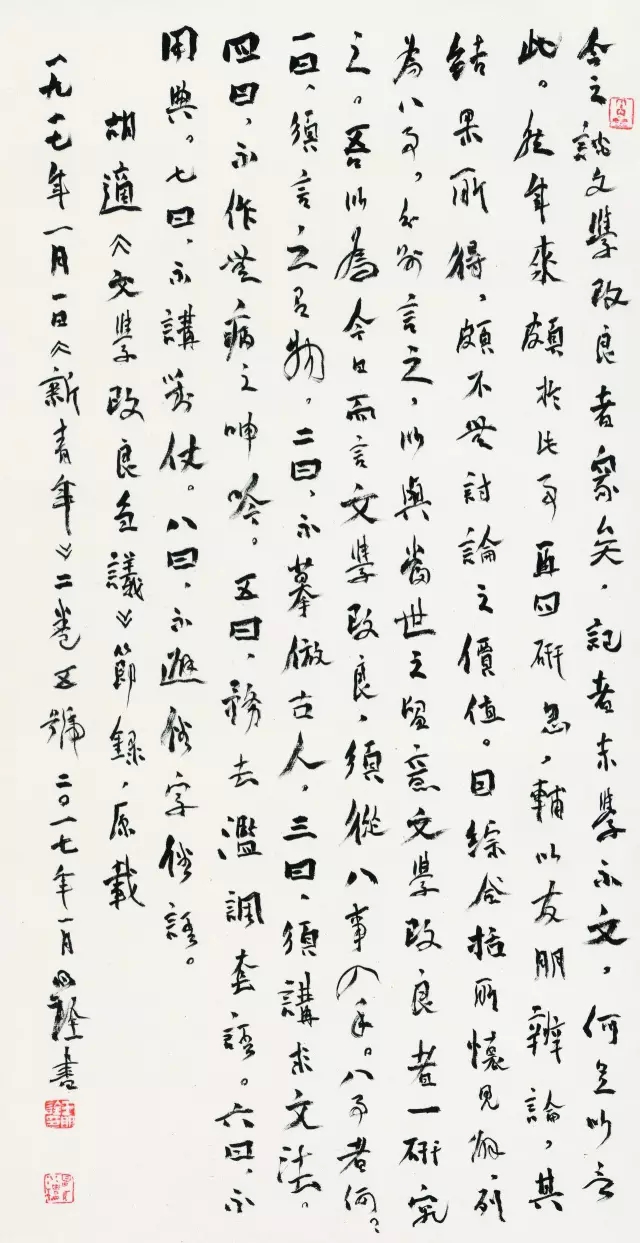 今之談文學改良者眾矣,記者末學不文,何足以言
此。然年來頗於此事再四研思,輔以友朋辯論,其
結果所得,頗不無討論之價值。因綜合括所懷見解,列
為八事,分別言之,以與當世之留意文學改良者一研究
之。吾以為今日而言文學改良,須從八事入手。八事者何?
一曰,須言之有物。二曰,不摹倣古人,三曰,須講求文法。
四曰,不作無病之呻吟。五曰,務去濫調套語。六曰,不
用典。七曰,不講對仗。八曰,不避俗字俗語。
胡適《文學改良芻議》節錄,原載
一九一七年一月一日《新青年》二卷五號 二〇一七年一月 書